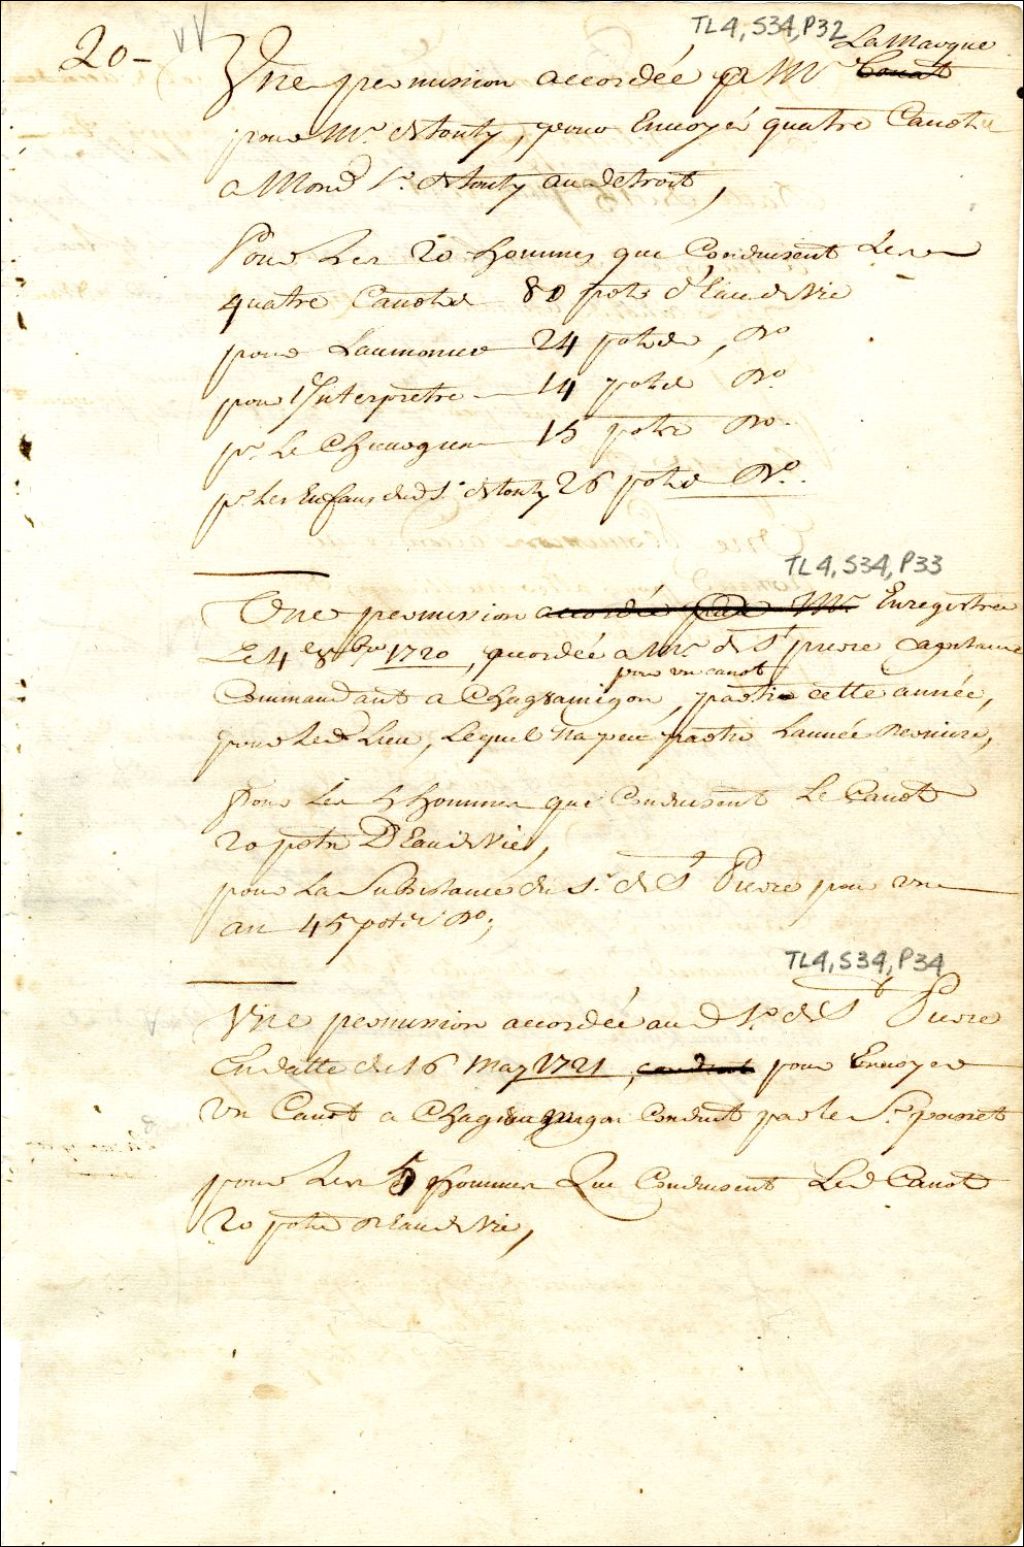 20-
TL4, S34, P32
Une permission accordée a Mr LaMarque Couart
pour Mr. de tonty, pour Envoyer quatre Canots
a Mond Sr. de tonty au detroit,
Pour Les 20 hommes qui Conduisent Les
quatre Canots 80 pots d'Eau de Vie
pour Laumonier 24 pots de, Do
pour l'Interprette 14 pots Do.
pr. Le Chirurgien 15 pots Do.
pr. Les Enfans dud Sr. de tonty 26 pots Do.
TL4, S34, P33
Une permission accordée par Mr Enregistrée
Le 4e 8bre 1720, accordée a Mr de St pierre Capitaine
pour un canot
Commandant a Chag8amigon, partir cette année,
pour Led Lieu, Lequel na peu partir Lannée Derniere,
pour Les 5 hommes qui Conduisent Le Canot
20 pots D'Eau de Vie,
pour La Subsistance du Sr. de St Pierre pour un
an 45 pots Do,
TL4, S34, P34
Une permission accordée aud Sr. de St Pierre
En datte du 16 May 1721, conduit pour Envoyer
un Canot a Chag8amigon Conduit par le Sr. poriet
pour Les 5 hommes Qui Conduisent Led Canot
20 pots D'Eau de Vie,